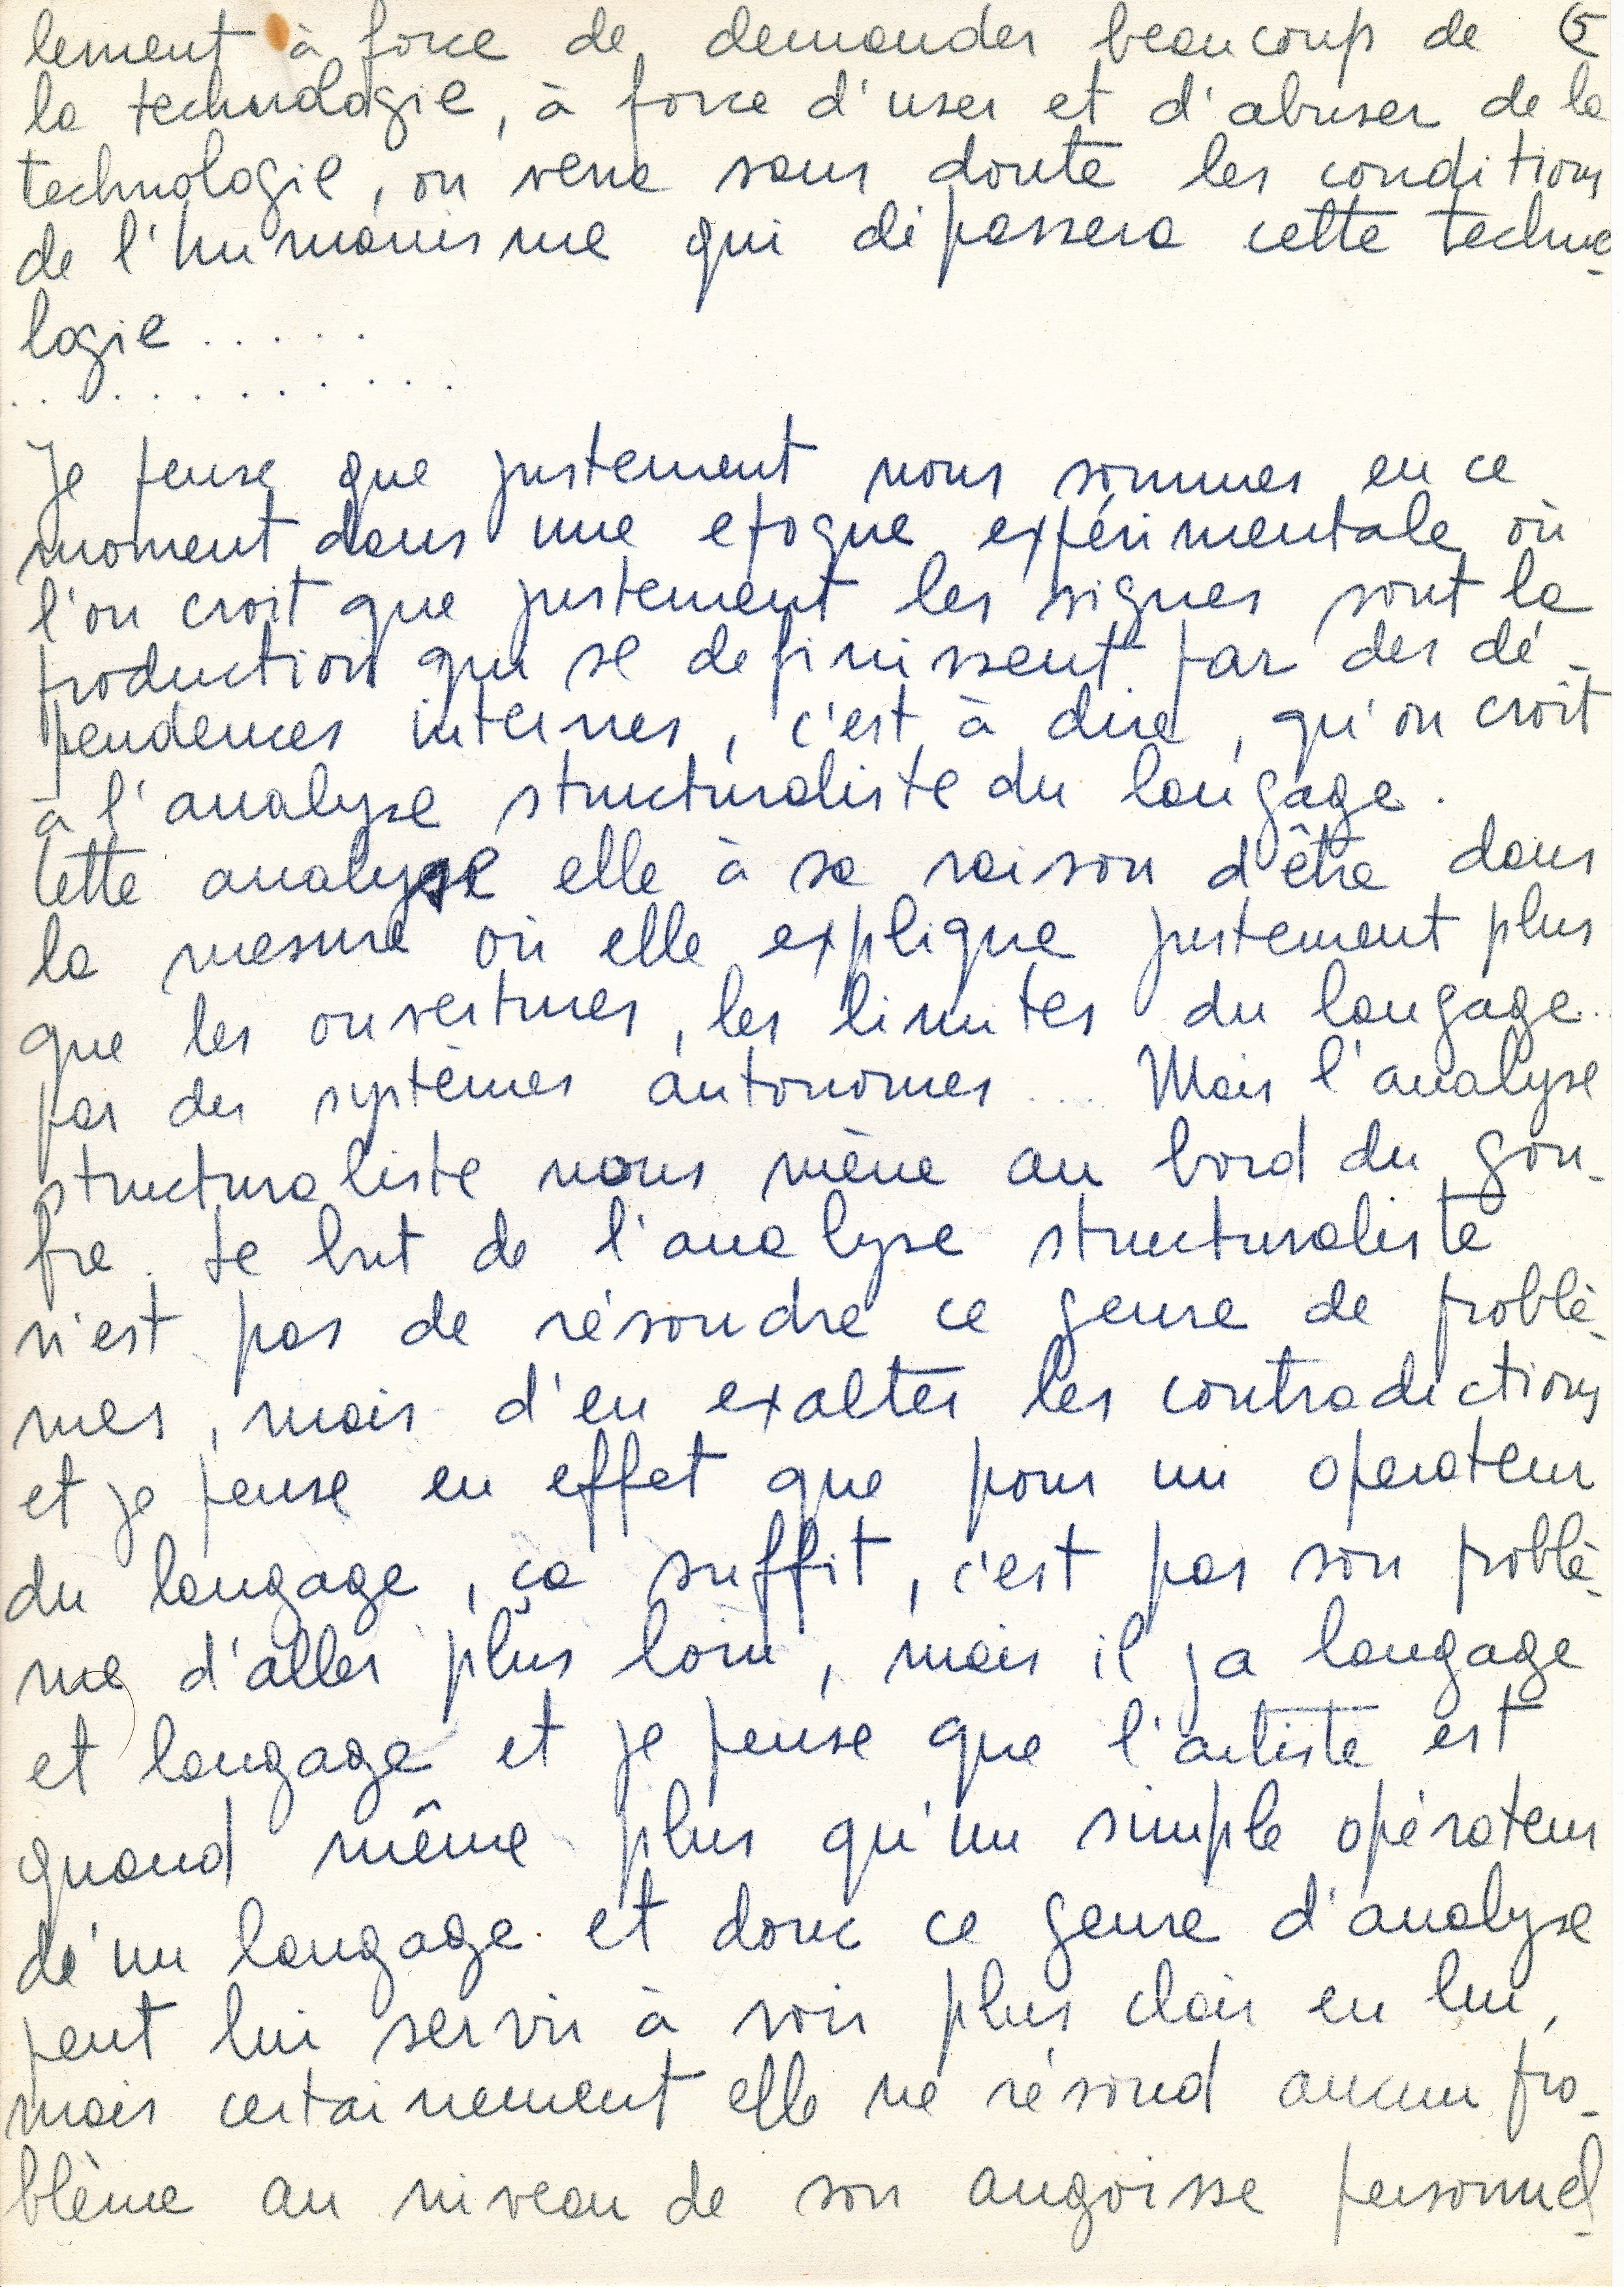 lement à force de demander beaucoup de 5
la technologie, à force d'user et d'abuser de la
technologie, on verra sans doute les conditions
de l'humanisme qui dépassera cette techno-
logie.....
..........
Je pense que justement nous sommes en ce
moment dans une epoque expérimentale où
l'on croit que justement les signes sont la
production qui se definissent par des dé-
pendences internes, c'est à dire, qu'on croit
à l'analyse structuraliste du langage.
Cette analyse elle à sa raison d'être dans
la mesure où elle explique justement plus
que les ouvertures, les limites du langage..
par des systèmes autonomes... Mais l'analyse
structuraliste nous mène au bord du gou-
fre. Le but de l'analyse structuraliste
n'est pas de résoudre ce genre de problè-
mes, mais d'en exalter les contradictions
et je pense en effet que pour un operateur
du langage, ça suffit, c'est pas son problè-
me d'aller plus loin, mais il ya langage
et langage et je pense que l'artiste est
quand même plus qu'un simple opérateur
de'un langage. et donc ce genre d'analyse
peut lui servir à voir plus clair en lui,
mais certainement elle ne résoud aucun pro-
blème au niveau de son angoisse personnel-